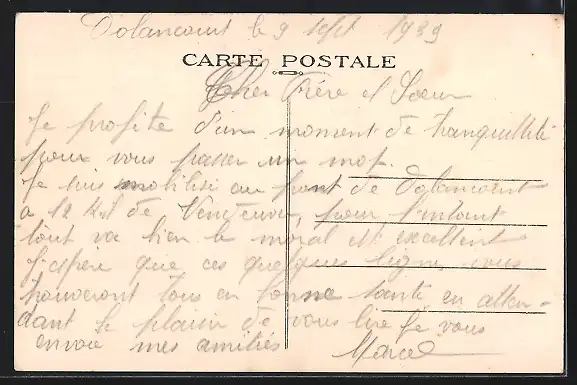 Dolancourt le 9 sept 1939
CARTE POSTALE
Cher Frère et Soeur
Je profite d'un moment de tranquillité
pour vous passer un mot.
Je suis mobilisé au pont de Dolancourt
a 12 Kil de Vendeuvre, pour l'instant
tout va bien le moral est excellent
J'espère que ces quelques lignes vous
trouveront tous en bonne santé en atten-
dant le plaisir de vous lire Je vous
envoie mes amitiés Marcel